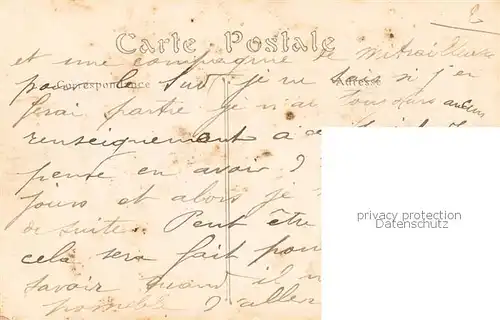 Carte Postale
et une compagnie de mitrailleurs
pour le Sud je ne sais si j'en
Correspondance
Adresse
ferai partie je n'ai toujours aucun
renseignement à ce
pense en avoir
jours et alors je
de suite. Peut être
cela sera fait pour
savoir quand il
possible d'aller
privacy protection
Datenschutz
2